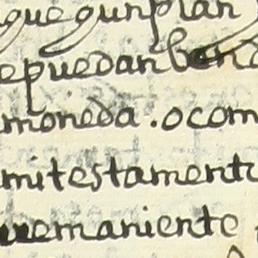 que gunplan
e puedan bend
moneda . o com
mi testament
remaniente